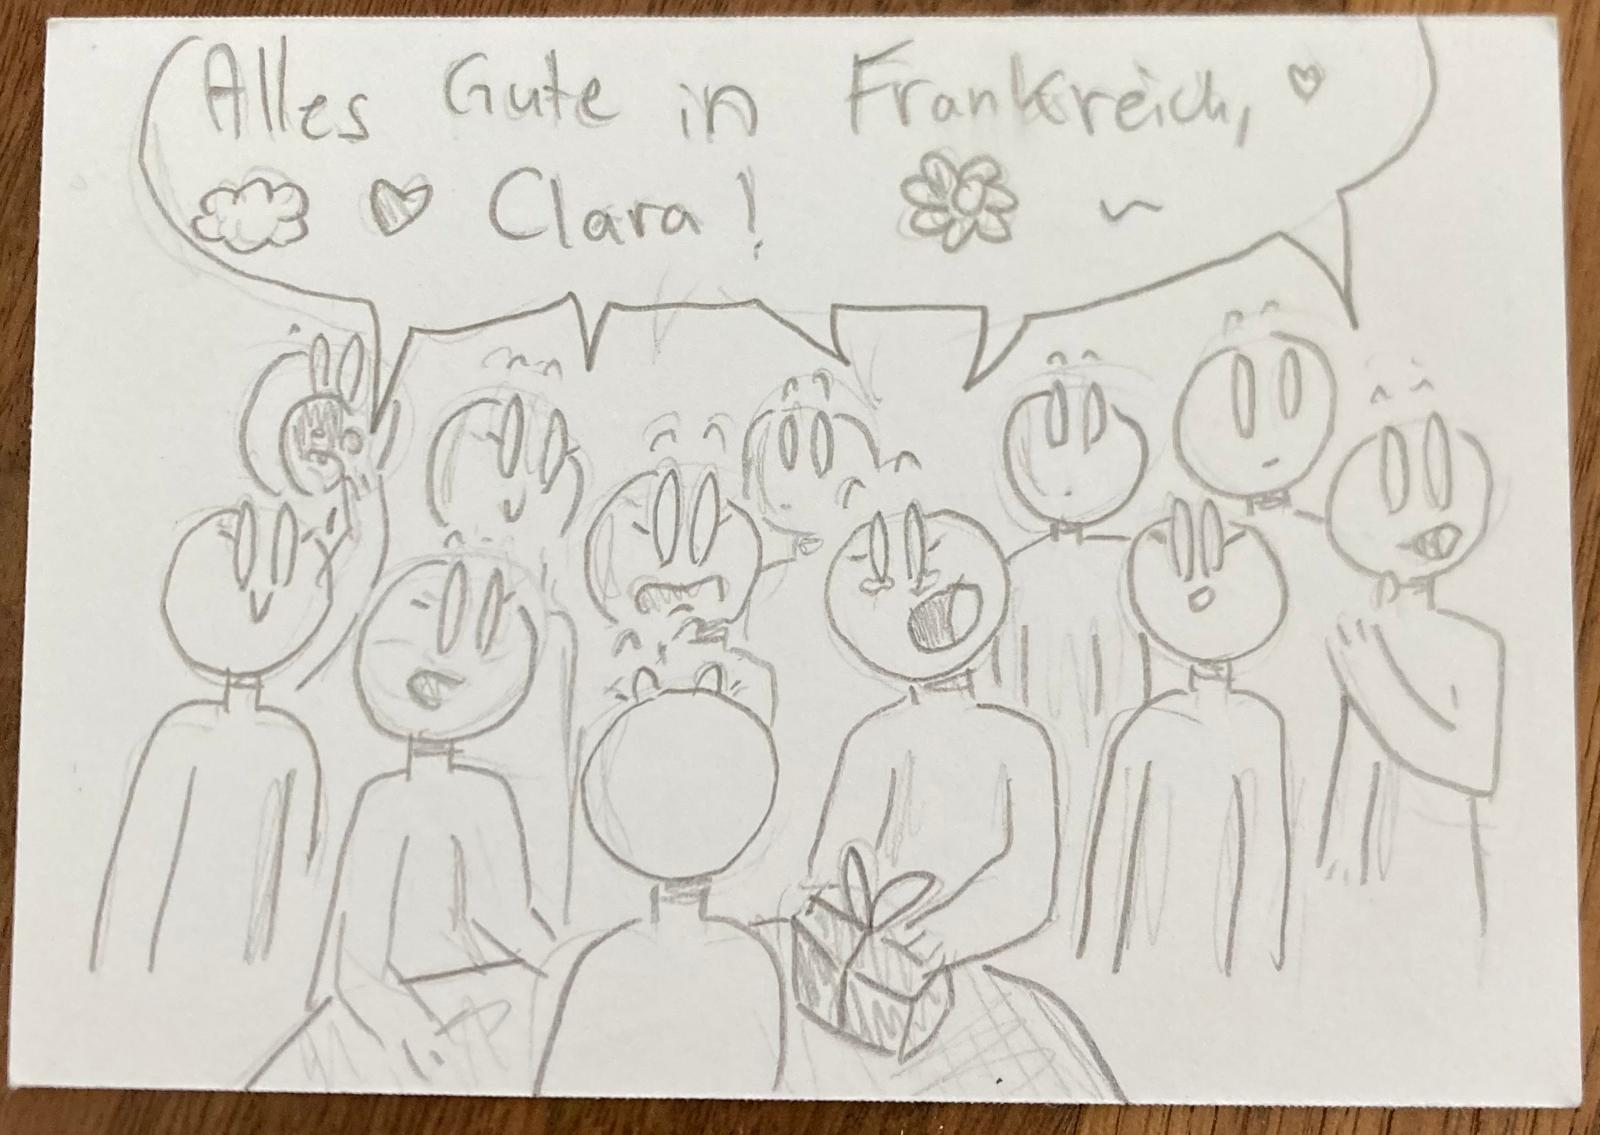 Alles Gute in Frankreich,
Clara!